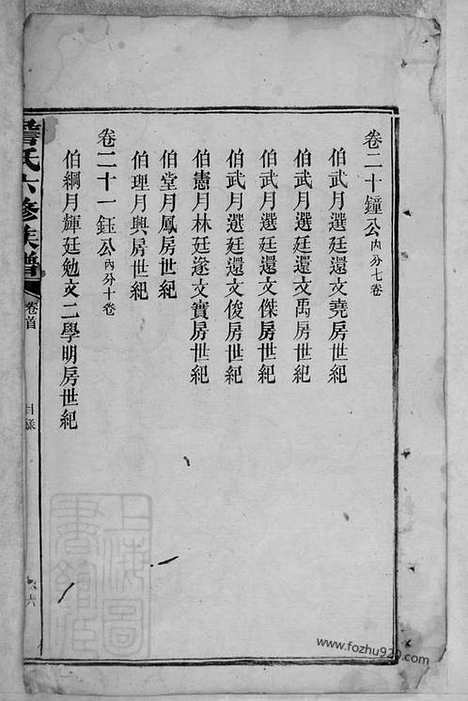 卷二十鐘公內分七卷
伯武月選廷還文堯房世紀
伯武月選廷還文禹房世紀
伯武月選廷還文傑房世紀
伯武月選廷還文俊房世紀
伯憲月林廷遂文實房世紀
伯堂月鳳房世紀
伯理月興房世紀
卷二十一鈺公內分十卷
伯綱月輝廷勉文二學明房世紀
氏六修族譜
卷首
目錄
六
上海圖書館藏
www.fozhu920.com